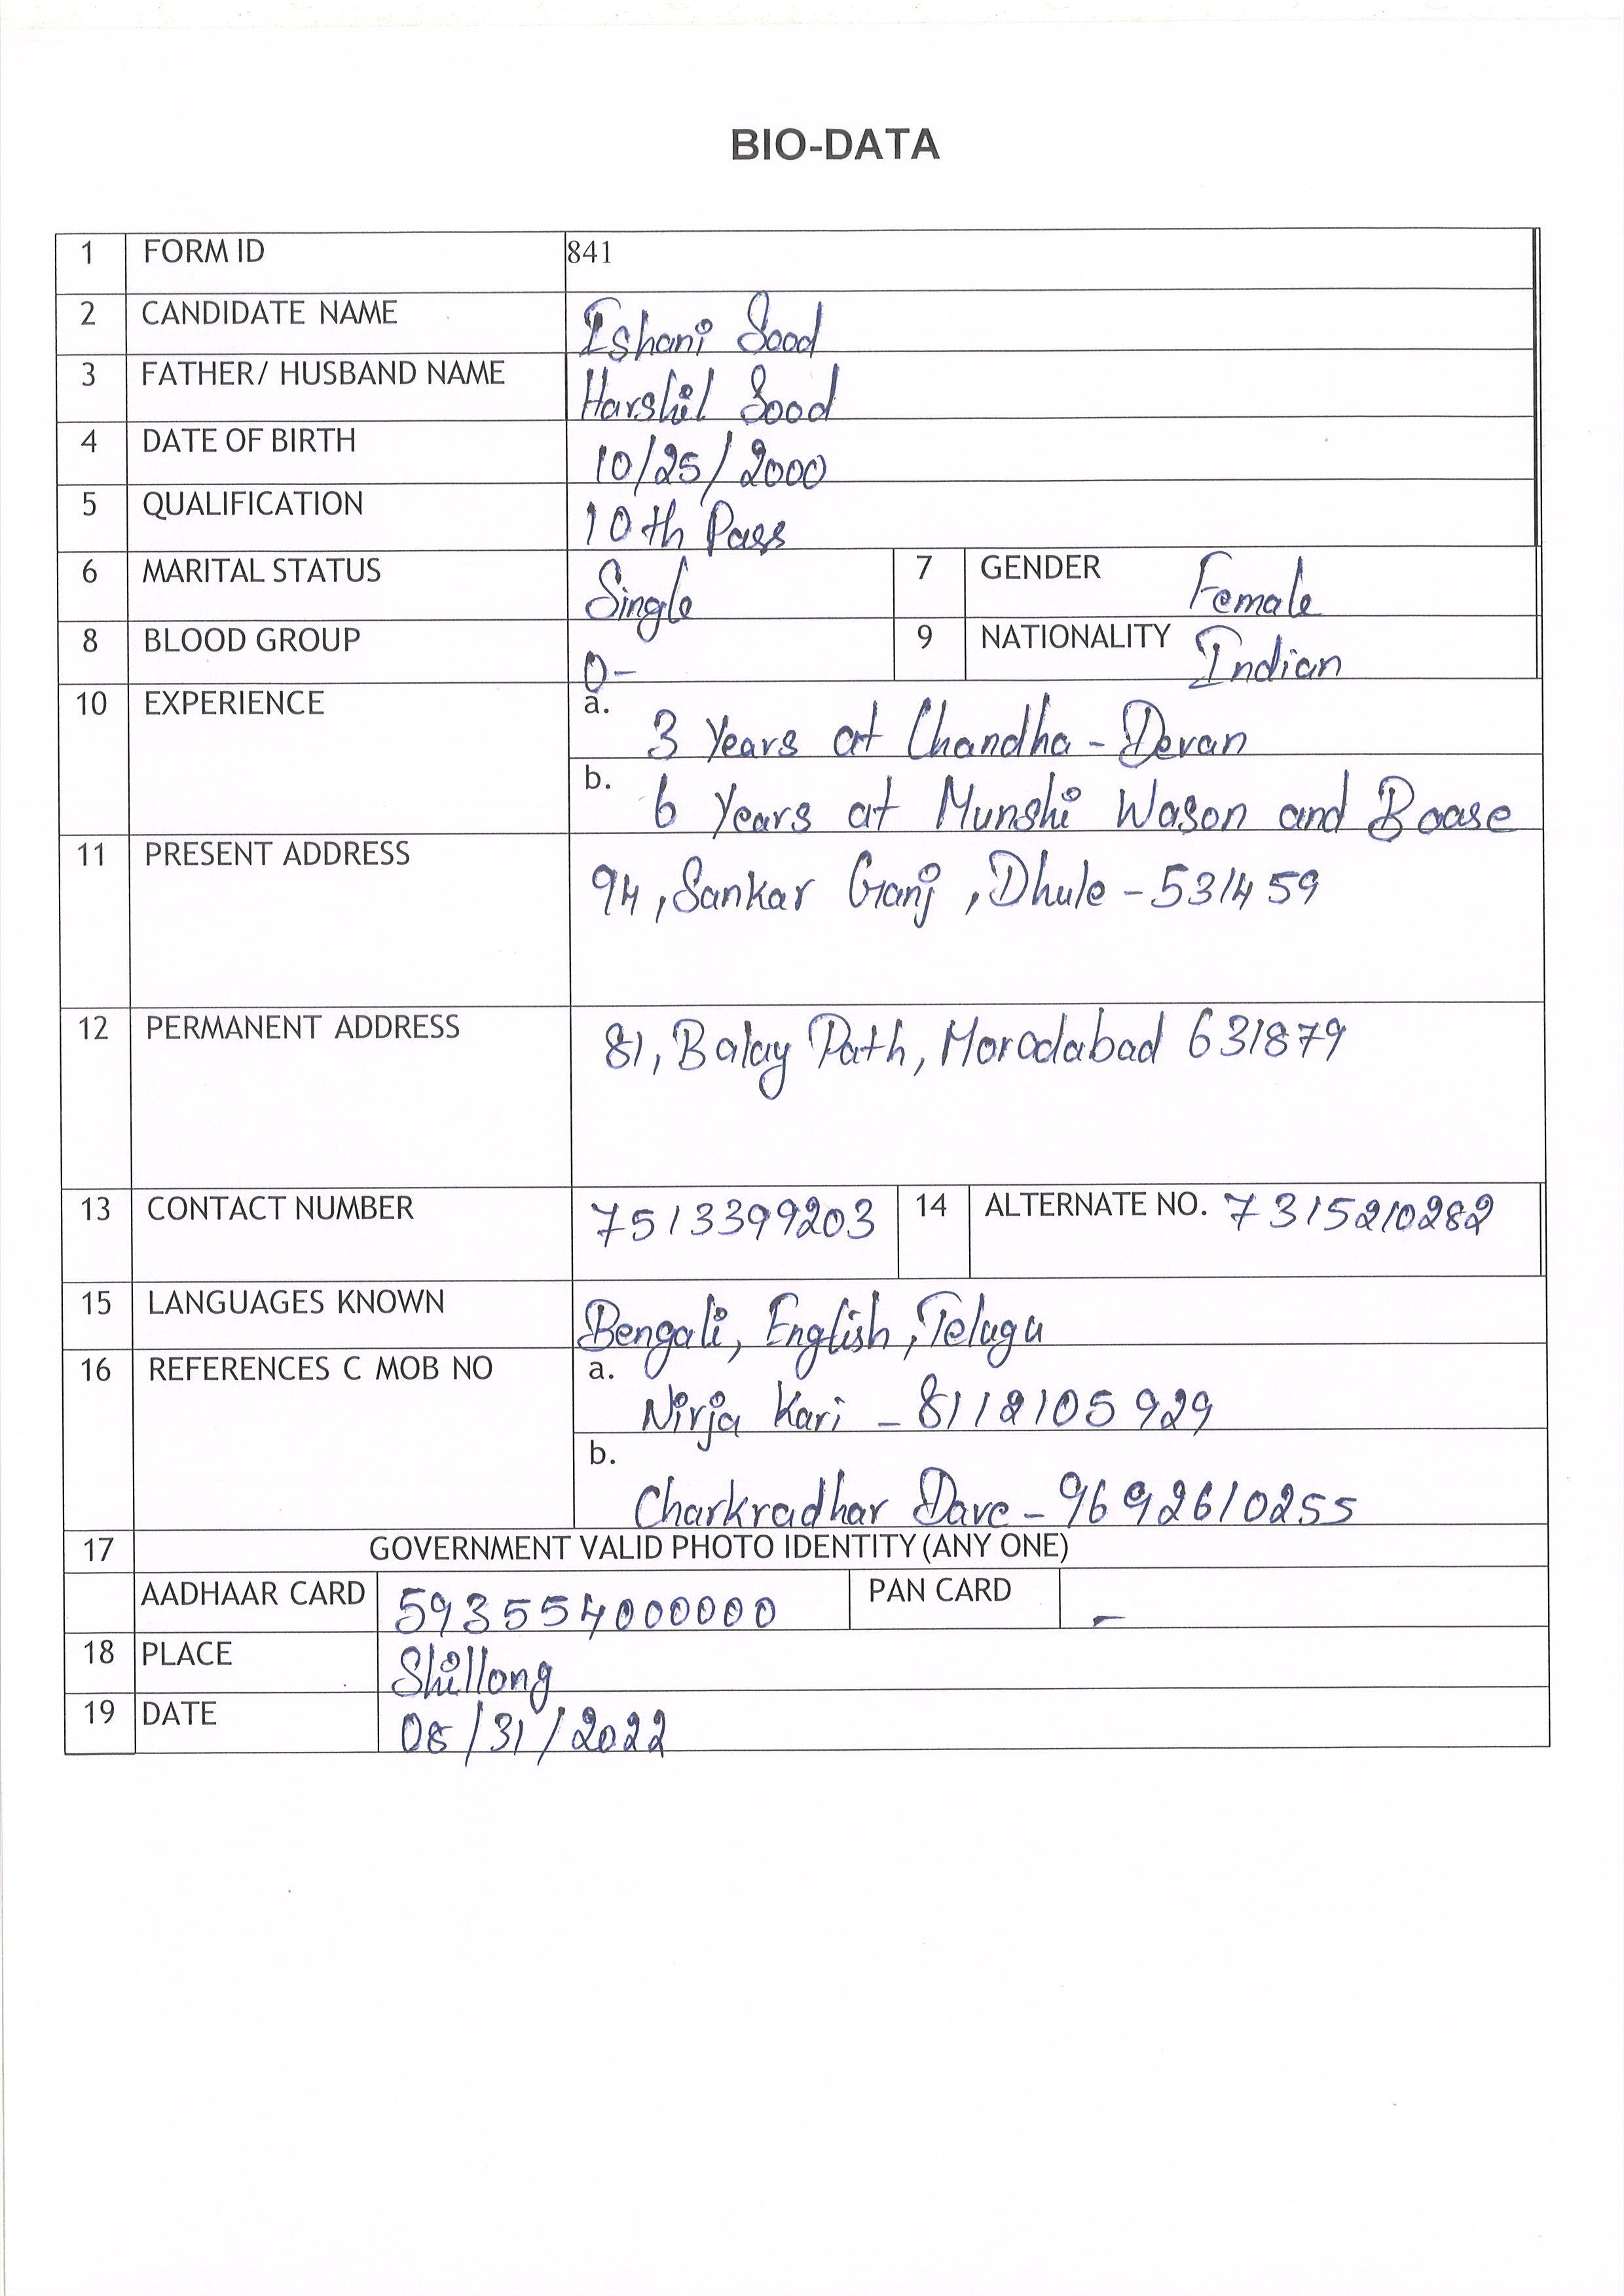 BIO-DATA
1 FORM ID 841
2 CANDIDATE NAME Ishani Sood
3 FATHER/ HUSBAND NAME Harshil Sood
4 DATE OF BIRTH 10/25/2000
5 QUALIFICATION 10th Pass
6 MARITAL STATUS Single 7 GENDER Female
8 BLOOD GROUP O- 9 NATIONALITY Indian
10 EXPERIENCE a. 3 Years at Chandha - Devan
b. 6 Years at Munshi Wason and Boase
11 PRESENT ADDRESS 94, Sankar Ganj, Dhule - 531459
12 PERMANENT ADDRESS 81, Balay Path, Moradabad 631879
13 CONTACT NUMBER 7513399203 14 ALTERNATE NO. 7315210282
15 LANGUAGES KNOWN Bengali, English, Telugu
16 REFERENCES C MOB NO a. Nirja Kari - 8112105929
b. Charkradhar Dave - 9692610255
17 GOVERNMENT VALID PHOTO IDENTITY (ANY ONE)
AADHAAR CARD 593554000000 PAN CARD -
18 PLACE Shillong
19 DATE 08/31/2022